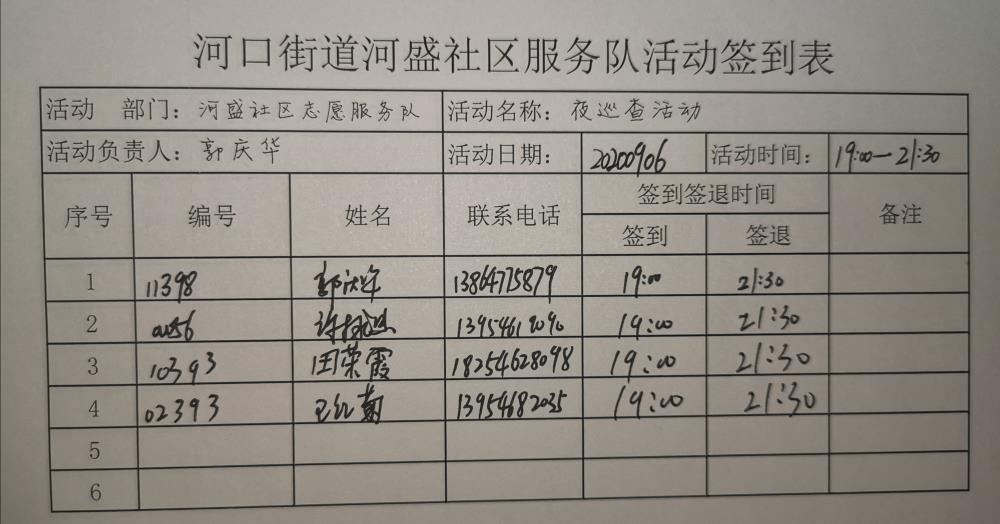 河口街道河盛社区服务队活动签到表
活动 部门：河盛社区志愿服务队 活动名称：夜巡查活动
活动负责人：郭庆华 活动日期：20200906 活动时间：19:00—21:30
序号 编号 姓名 联系电话 签到签退时间 备注
签到 签退
1 11398 郭庆华 13864775879 19:00 21:30
2 13954619090 19:00 21:30
3 10393 田荣霞 18254628098 19:00 21:30
4 02393 王红菊 13954682035 19:00 21:30
5
6